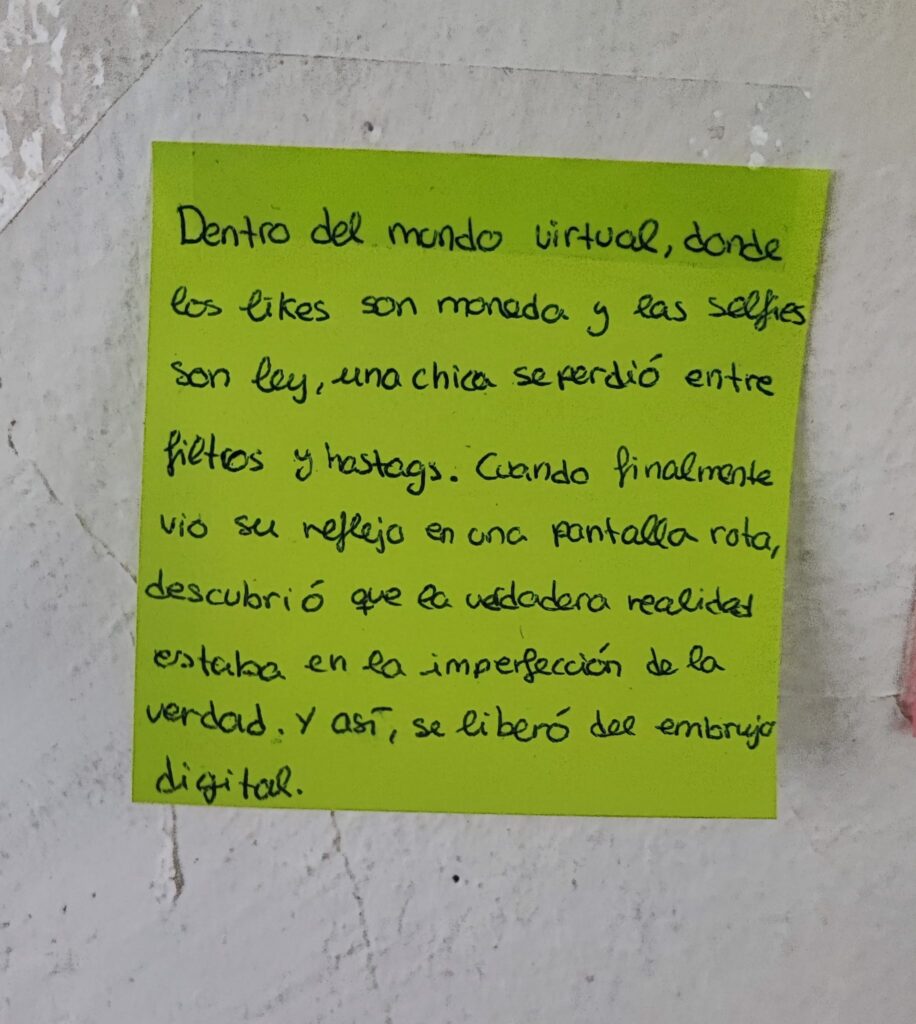 Dentro del mundo virtual, donde
los likes son moneda y las selfies
son ley, una chica se perdió entre
filtros y hastags. Cuando finalmente
vio su reflejo en una pantalla rota,
descubrió que la verdadera realidad
estaba en la imperfección de la
verdad. Y así, se liberó del embrujo
digital.